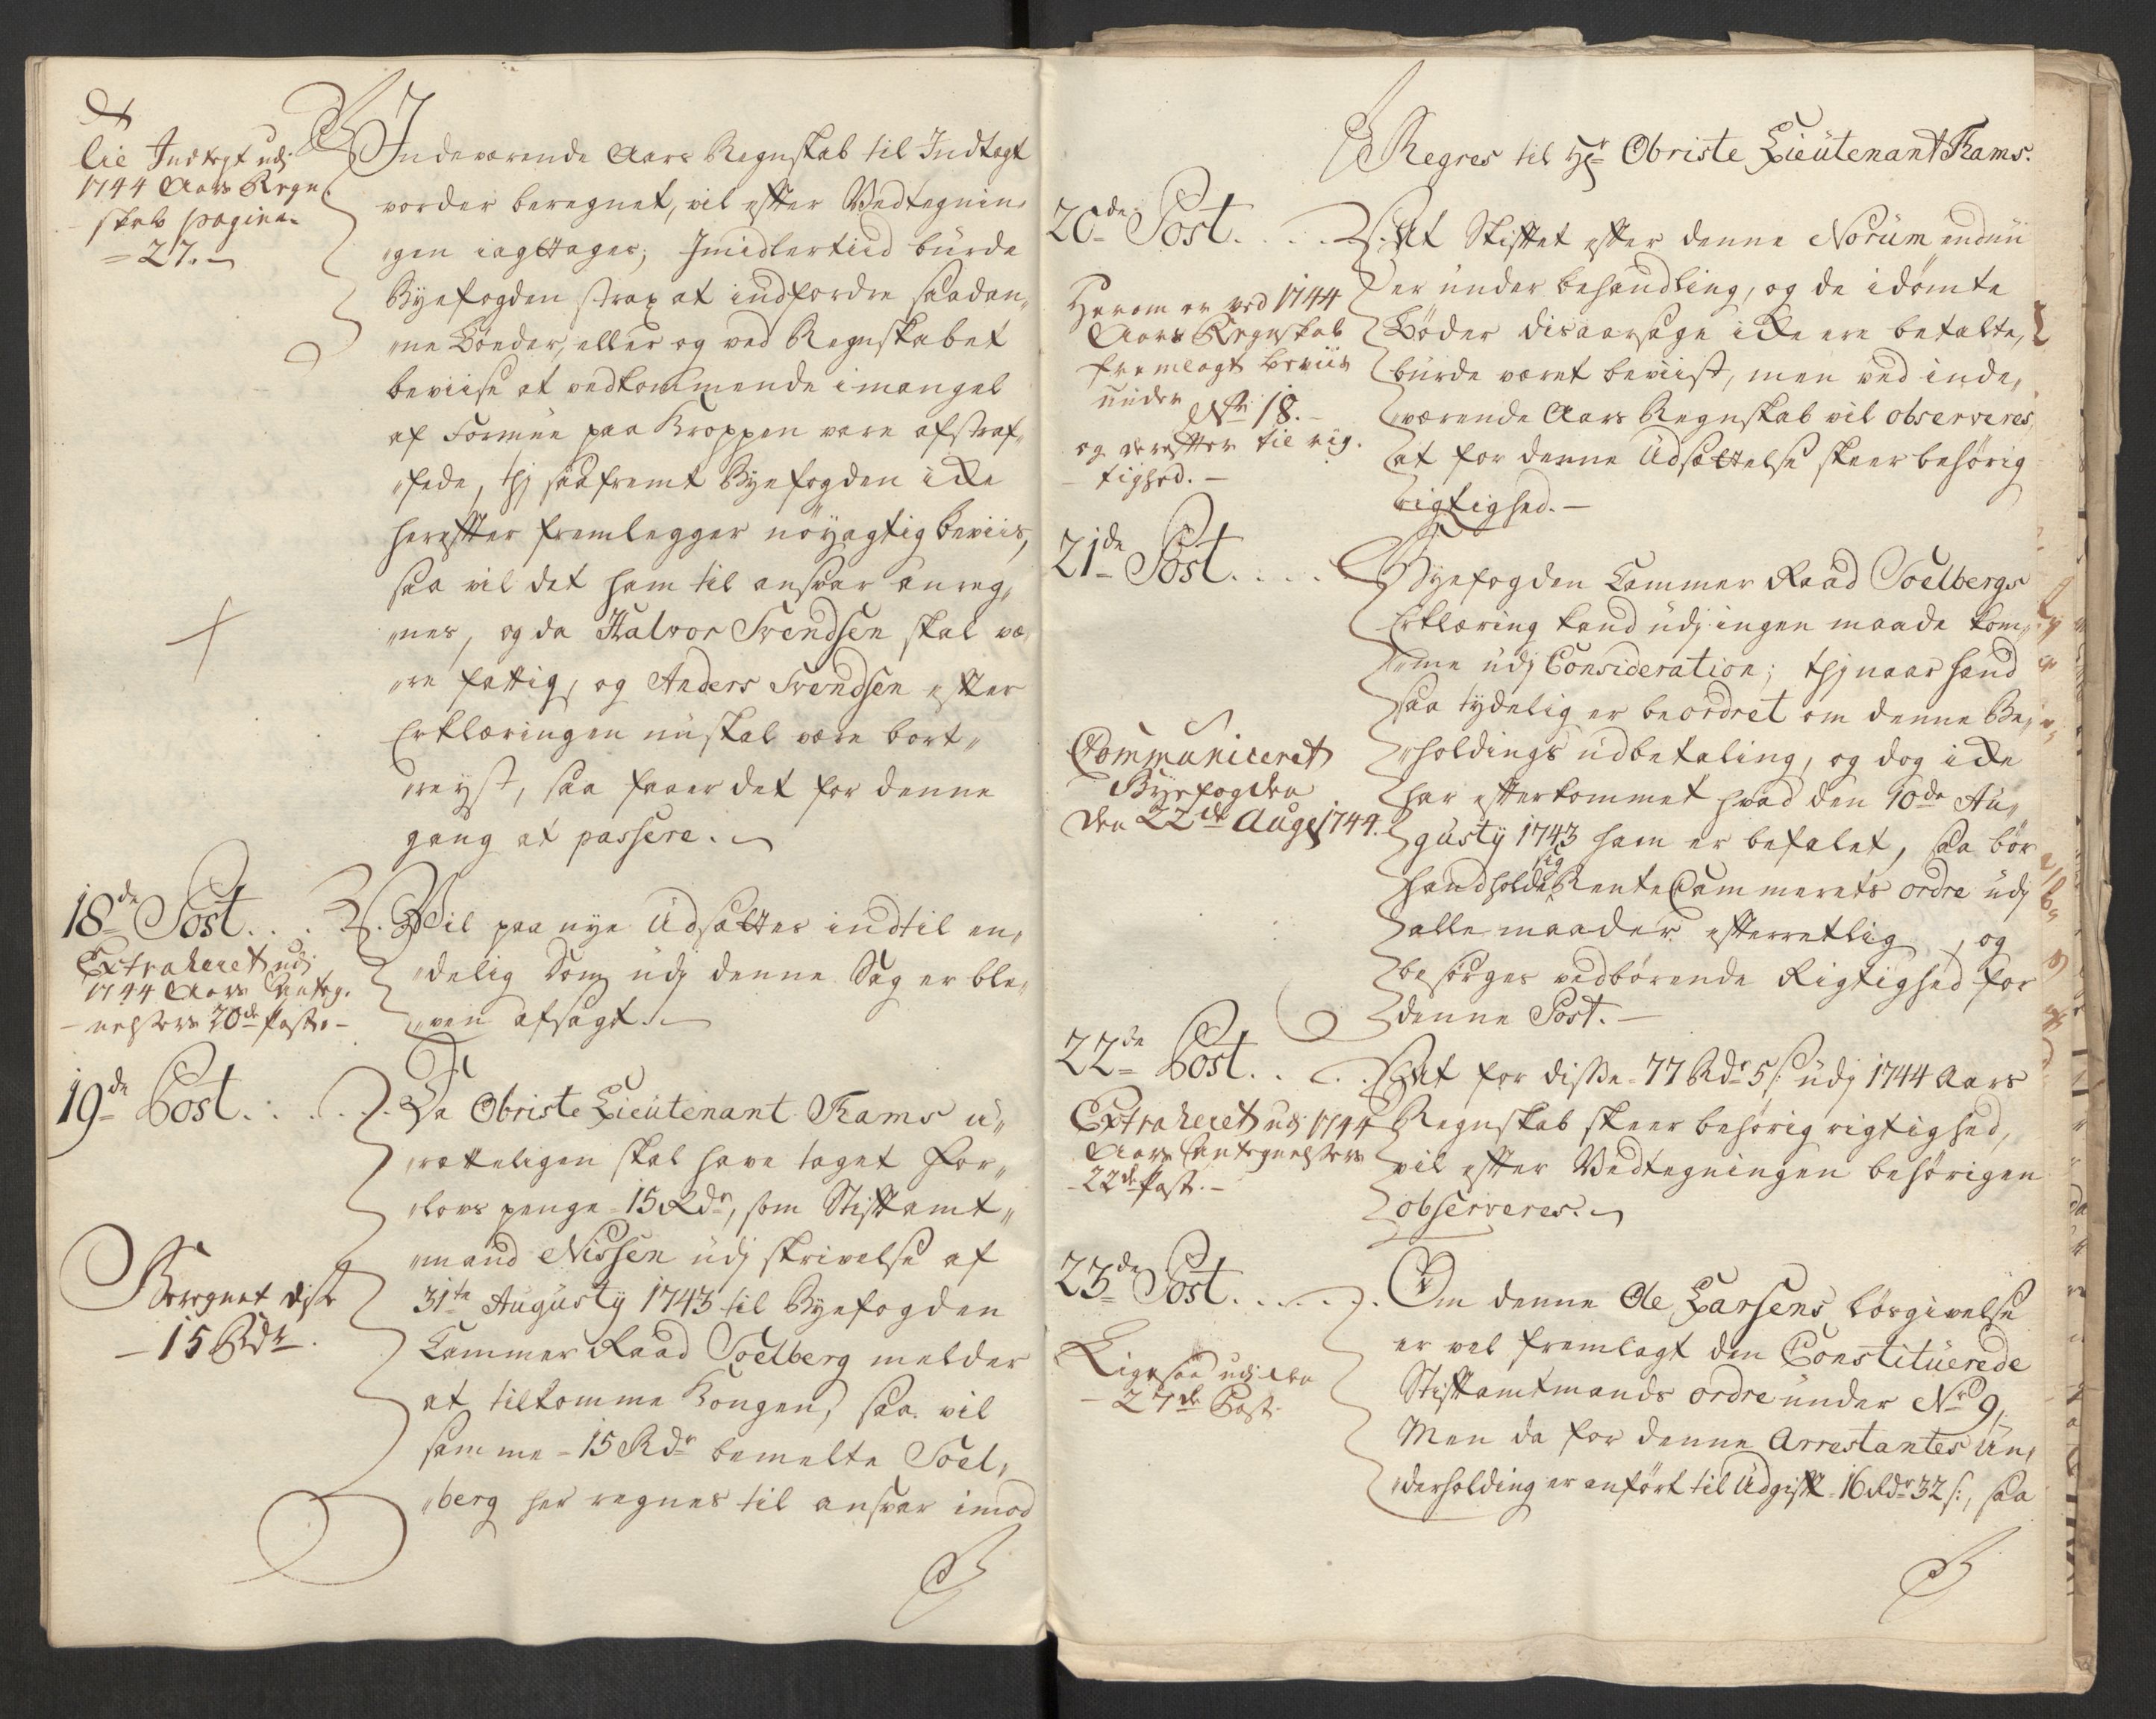 til Indtegt udj
1744 Aars Regn¬
skab pagina
27.
Indeværende Aars Regnskab til Indtægt
vorder beregnet, vil efter Vedtegnin„
gen iagttages; Imidlertiid burde
Byefogden strax at indfordre saadan„
„ne Bøder, eller og ved Regnskabet
beviise at vedkommende i mangel
af Formue paa Kroppen vare afstraf„
„fede, thj saafremt Byefogden icke
herefter fremlegger nöyagtig beviis,
saa vil det ham til ansvar anreg„
„nes, og da Halvor Svendsen skal væ„
„re fattig, og Anders Svendsen efter
Erklæringen nu skal være bort„
„reyst, saa faaer det for denne
gang at passere.
18de Post. . .
Extraheret udj
1744 Aars Anteg¬
nelsers 20de Post.
Vil paa nye Udsættes indtil en„
„delig Dom udj denne Sag er ble„
„ven afsagt.
19de Post. . . .
Da Obriste Lieutenant Rams u„
„retteligen skal have taget For„
„lovs penge 15 Rdr, som Stiftamt„
„mand Nissen udj skrivelse af
31te Augusty 1743 til Byefogden
Cammer Raad Soelberg melder
at tilkomme Kongen, saa vil
samme 15 Rdr bemelte Soel„
„berg her regnes til ansvar imod
Beregnet disse
15 Rdr.
Regres til Hr Obriste Lieutenant Rams.
20de Post. . . .
Herom er ved 1744
Aars Regnskab
fremlagt beviis
under
No 18.
og derefter til rig¬
tighed.
At Skiftet efter denne Norum endnu
er under behandling, og de idømte
Bøder disaarsage icke ere betalte,
burde været beviist, men ved inde„
værende Aars Regnskab vil observeres,
at for denne Udsættelse skeer behörig
rigtighed.
21de Post. . . .
Byefogden Cammer Raad Soelbergs
Erklæring kand udj ingen maade kom„
„me udj Consideration; thj naar hand
saa tydelig er beordret om denne Be„
„holdings udbetaling, og dog icke
har efterkommet hvad den 10de Au„
gusty 1743 ham er befalet, saa bör
hand holde sig Rente Cammerets ordre udj
alle maader efterretlig, og
besörges vedbörende Rigtighed for
denne Post.
Communiceret
Byefogden
den 22de Aug. 1744.
22de Post. . . .
Extraheret udj 1744
Aars Antegnelsers
22de Post.
At for disse 77 Rdr 5 s: udj 1744 Aars
Regnskab skeer behörig rigtighed,
vil efter Vedtegningen behörigen
observeres.
23de Post. . . . .
Ligesaa udj den
27de Post.
Om denne Ole Larsens lösgivelse
er vel fremlagt den Constituerede
Stiftamtmands ordre under No 9,
Men da for denne Arrestantes Un„
„derholding er anført til Udgift 16 Rdr 32 s:, saa